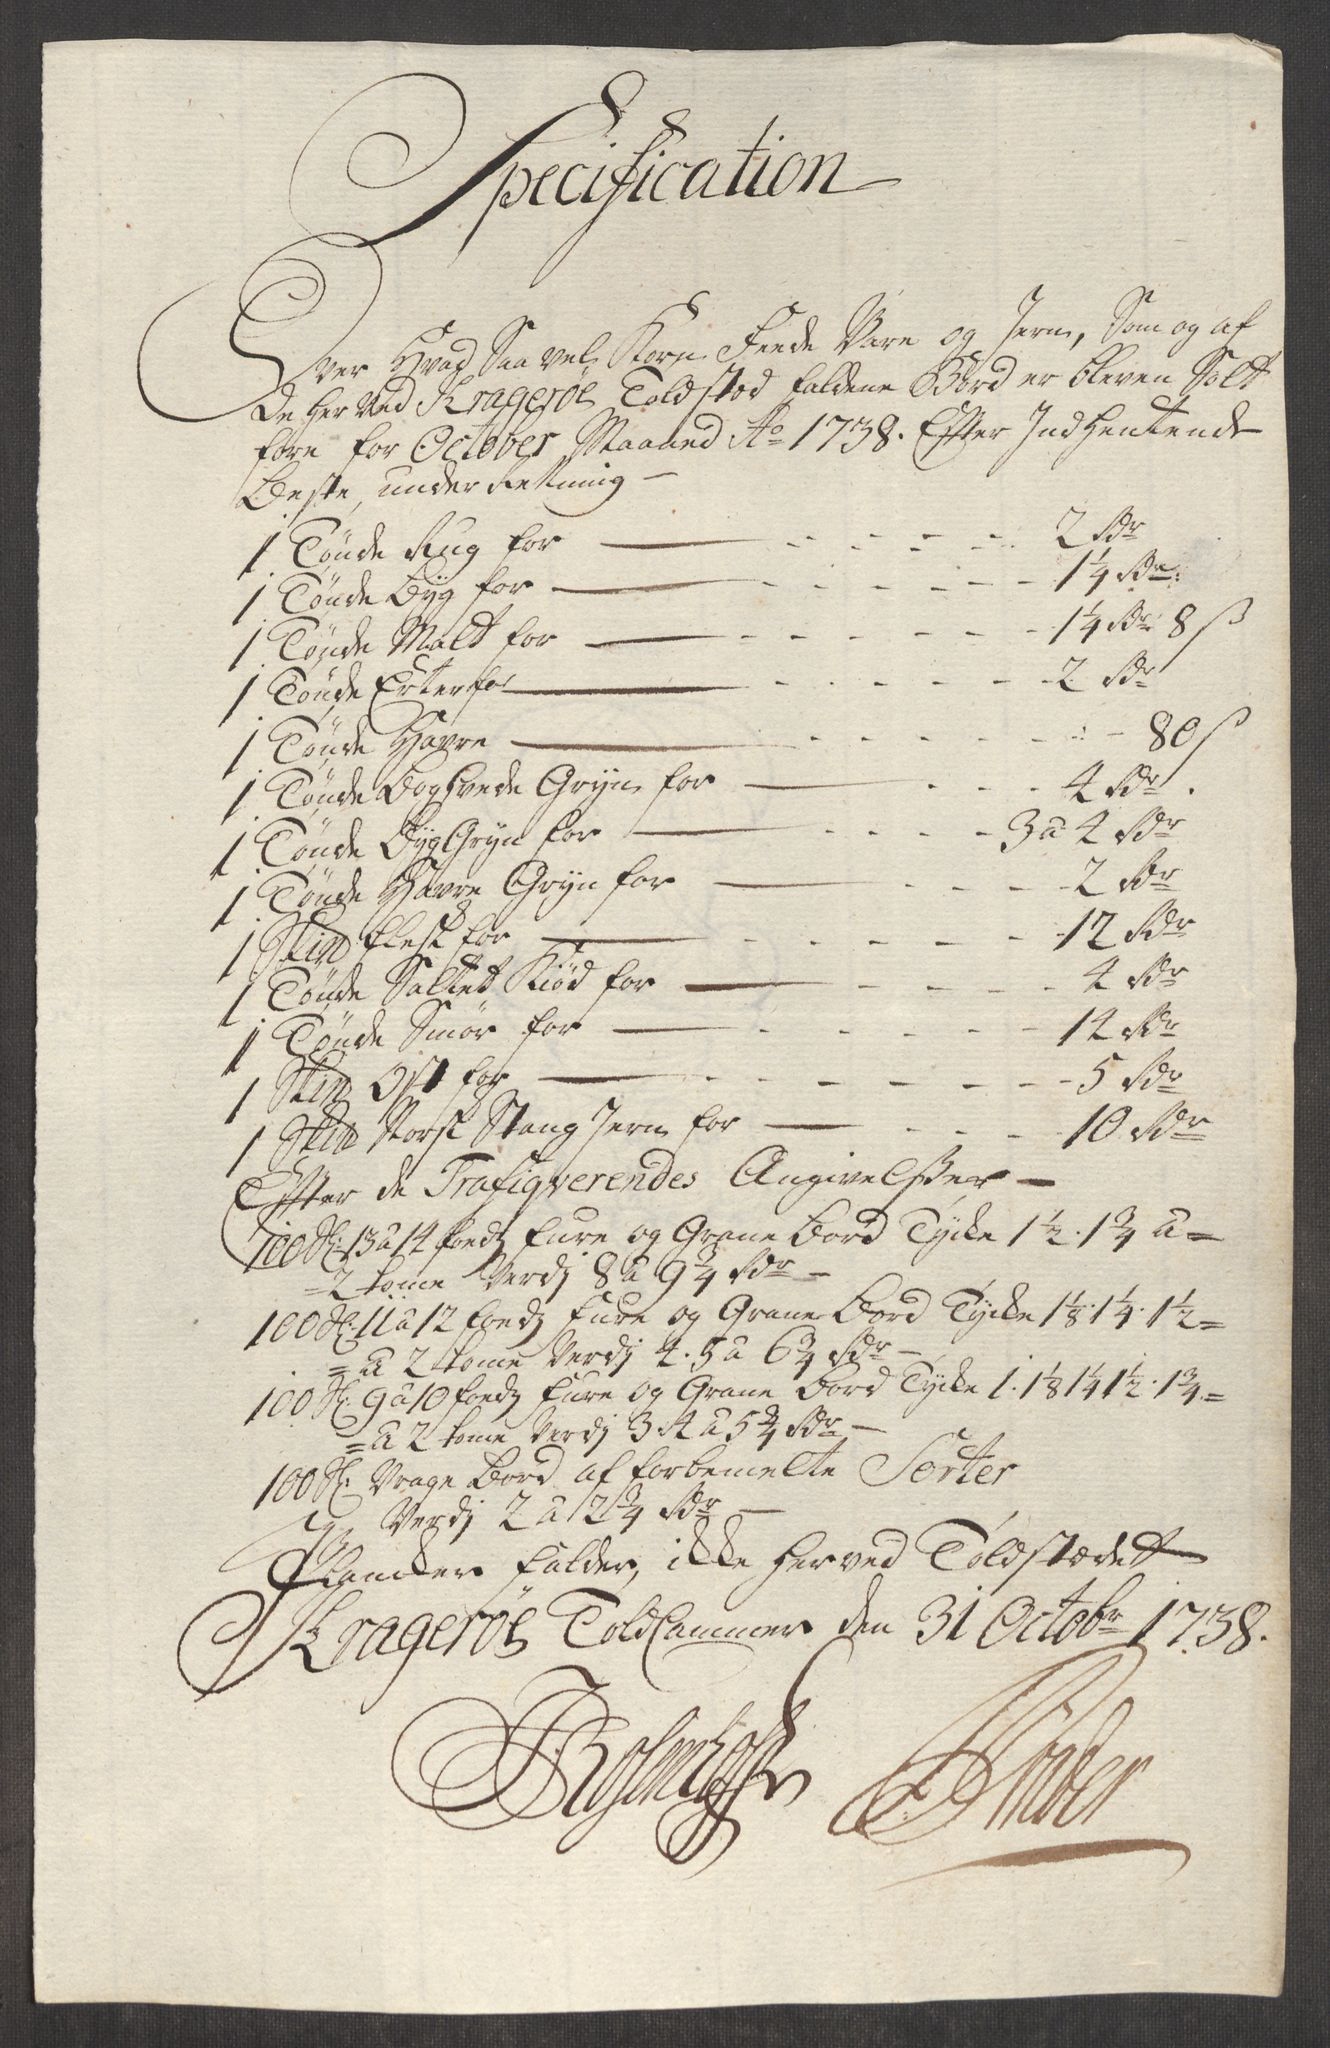 Specification
Over Hvad Saavel Korn Feede Vare og Jern, Som og af
De her Ved Kragerøe Toldstæd faldene Bord er bleven Solt
fore for October Maaned Ao 1738. Efter Indhentende
Beste underRetning
1 Tønde Rug for - - - - 2 Rdr
1 Tønde Byg for - - - - 1¼ Rdr:
1 Tønde Malt for - - - - 1¼ Rdr 8 s
1 Tønde Erter for - - - - 2 Rdr
1 Tønde Havre - - - - 80 s
1 Tønde Boghvede Gryn for - - - - 4 Rdr.
1 Tønde Byg Gryn for - - - - 3 a 4 Rdr
1 Tønde Havre Gryn for - - - - 2 Rdr
1 Skip℔ Flesk for - - - - 12 Rdr
1 Tønde Saltet Kiød for - - - - 4 Rdr
1 Tønde Smør for - - - - 14 Rdr
1 Skip℔ Ost for - - - - 5 Rdr
1 Skip℔ Norsk Stang Jern for - - - - 10 Rdr
Efter de Trafiqverendes Angivelsser
100 St: 13 a 14 foedz Fure og Grane Bord Tycke 1½. 1¾ a =
= 2 tome Verdj 8 a 9¾ Rdr
100 St: 11 a 12 foedz Fure og Grane Bord Tycke 1⅛. 1¼. 1½ =
= a 2 tome Verdj 4. 5 a 6¾ Rdr
100 St. 9 a 10 foedz Fure og Grane Bord Tycke 1. 1⅛ 1¼ 1½. 1¾. =
= a 2 tome Verdj 3. 4 a 5¾ Rdr
100 St. Vrage Bord af forbemelte Sorter
Verdj 2 a 2¾ Rdr
Plancker falder, ikke herved Toldstædet
Kragerøe ToldCammer den 31 Octobr 1738.